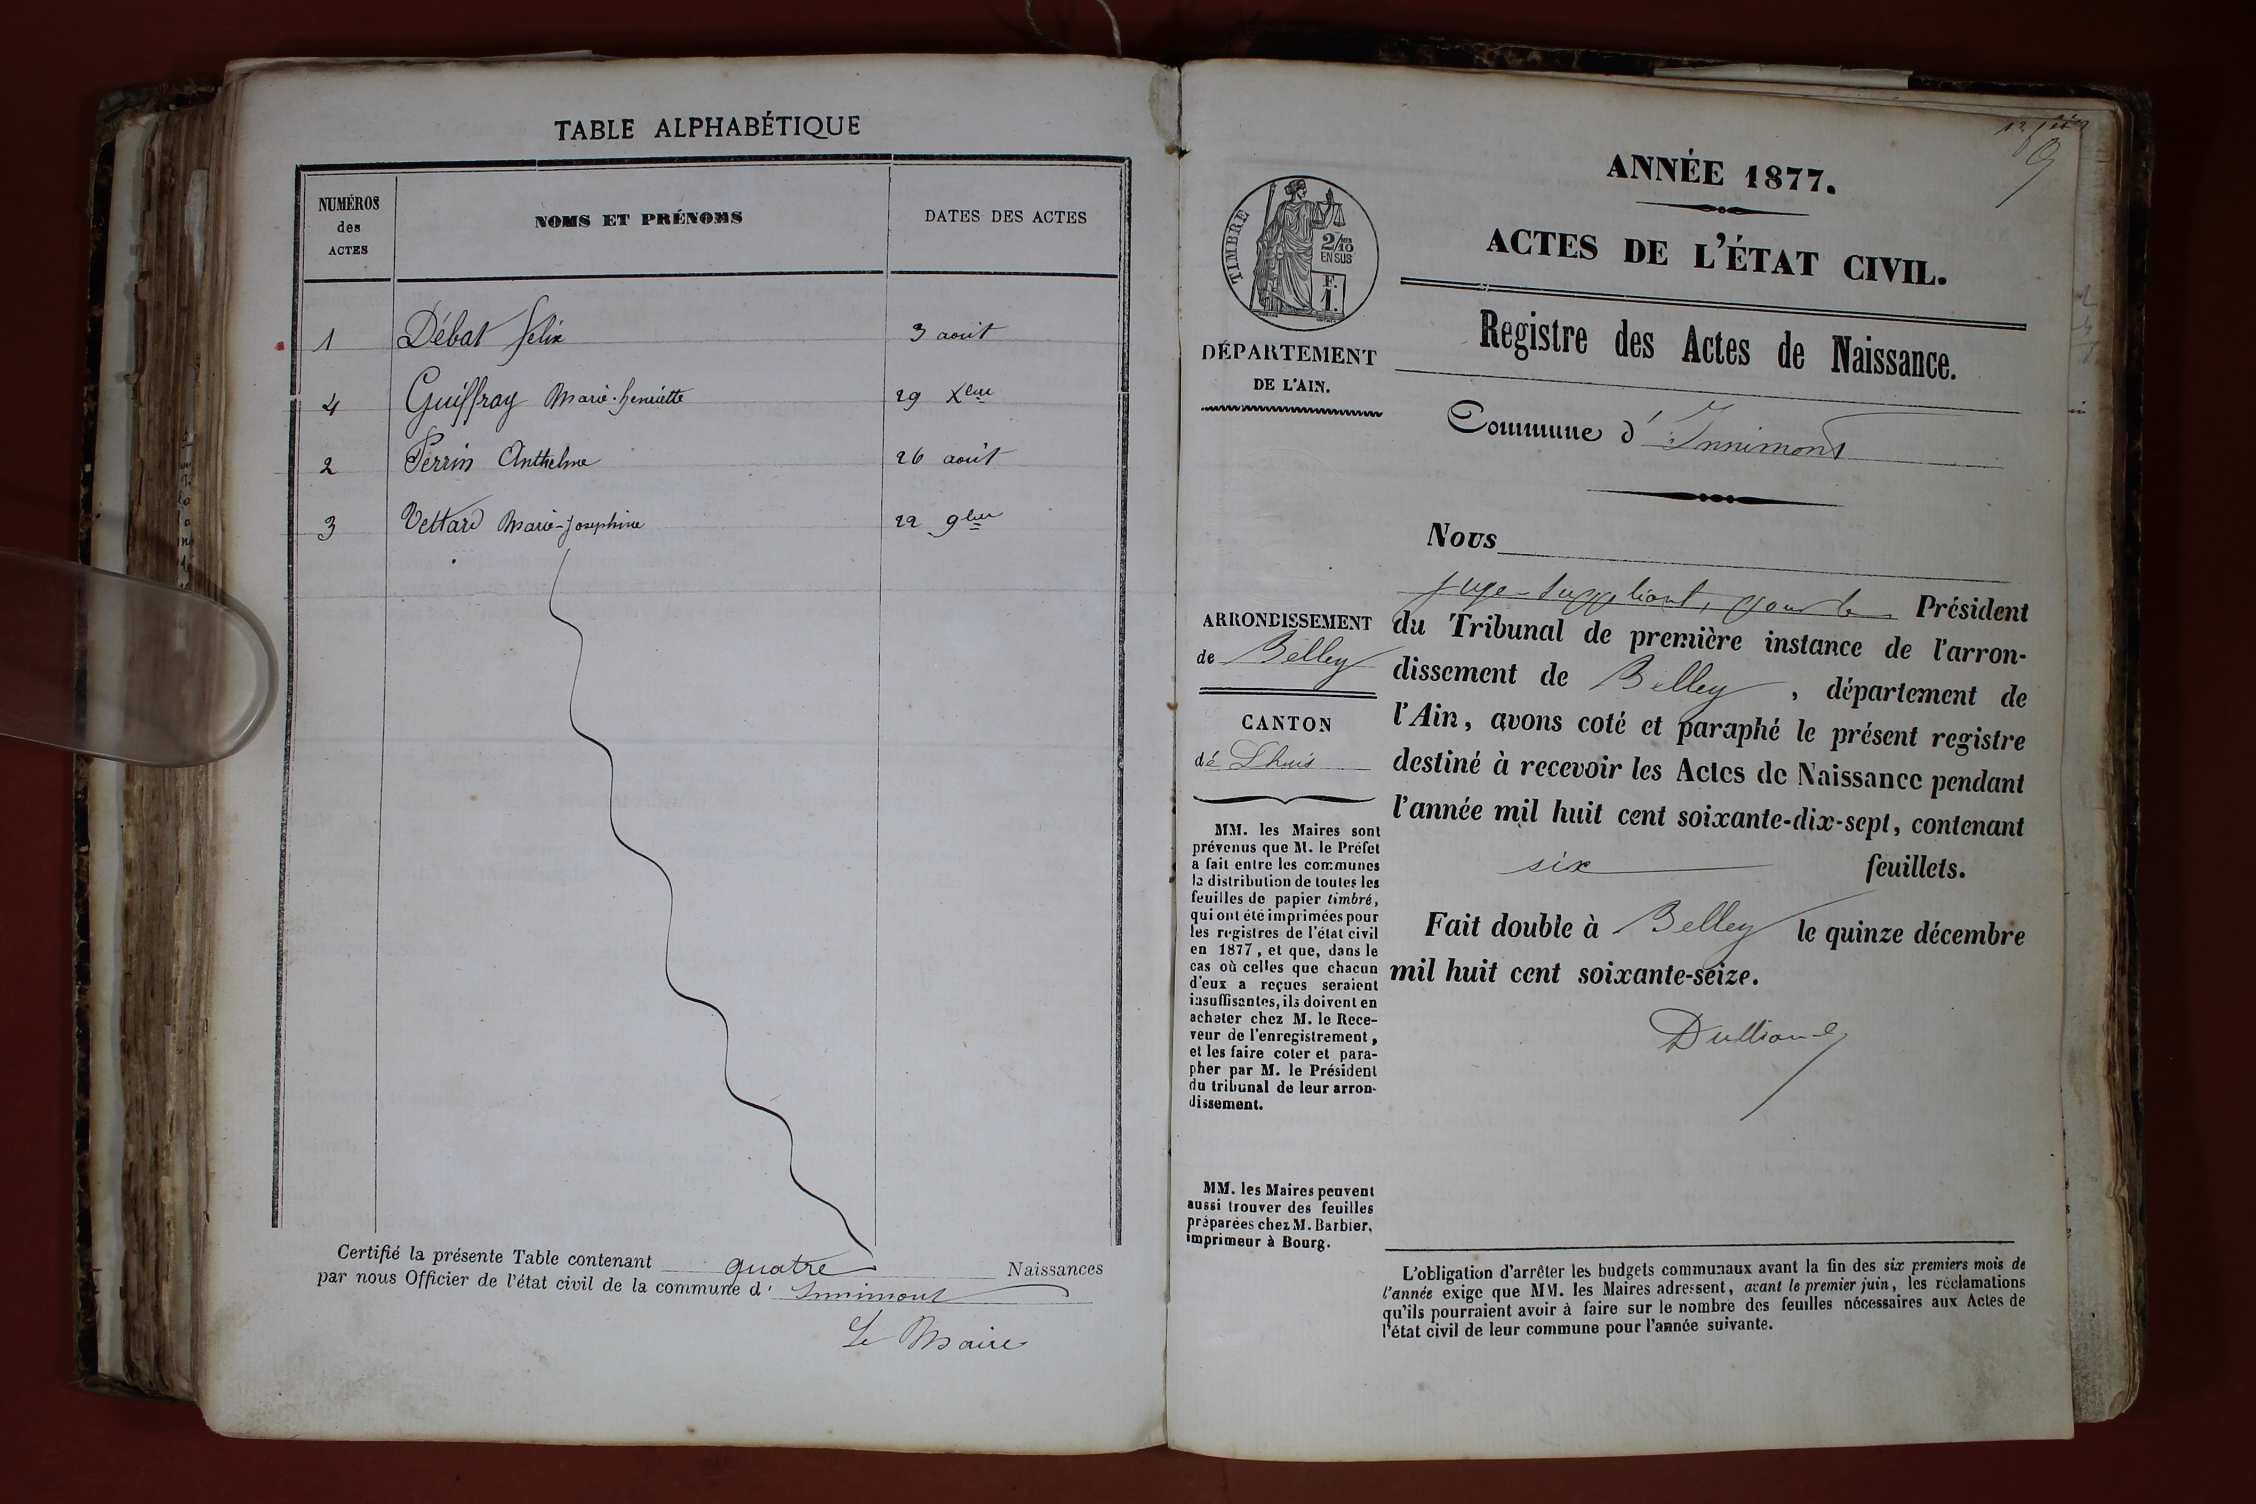 TABLE ALPHABÉTIQUE
NUMÉROS des ACTES
NOMS ET PRÉNOMS
DATES DES ACTES
1 Débat felix 3 août
4 Guiffray Marie-henriette 29 Xbre
2 Perrin Anthelme 26 août
3 Vettard Marie-Josephine 22 9bre
Certifié la présente Table contenant quatre Naissances
par nous Officier de l'état civil de la commune d' Innimont
Le Maire
ANNÉE 1877.
ACTES DE L'ÉTAT CIVIL.
TIMBRE
2/10
EN SUS
F.
1.
DÉPARTEMENT
DE L'AIN.
Registre des Actes de Naissance.
Commune d' Innimont
ARRONDISSEMENT
de Belley
CANTON
de Lhuis
MM. les Maires sont
prévenus que M. le Préfet
a fait entre les communes
la distribution de toutes les
feuilles de papier timbré,
qui ont été imprimées pour
les registres de l'état civil
en 1877, et que, dans le
cas où celles que chacun
d'eux a reçues seraient
insuffisantes, ils doivent en
acheter chez M. le Rece-
veur de l'enregistrement,
et les faire coter et para-
pher par M. le Président
du tribunal de leur arron-
dissement.
MM. les Maires peuvent
aussi trouver des feuilles
préparées chez M. Barbier,
imprimeur à Bourg.
Nous
juge-suppléant, pour le Président
du Tribunal de première instance de l'arron-
dissement de Belley, département de
l'Ain, avons coté et paraphé le présent registre
destiné à recevoir les Actes de Naissance pendant
l'année mil huit cent soixante-dix-sept, contenant
six feuillets.
Fait double à Belley le quinze décembre
mil huit cent soixante-seize.
L'obligation d'arrêter les budgets communaux avant la fin des six premiers mois de
l'année exige que MM. les Maires adressent, avant le premier juin, les réclamations
qu'ils pourraient avoir à faire sur le nombre des feuilles nécessaires aux Actes de
l'état civil de leur commune pour l'année suivante.